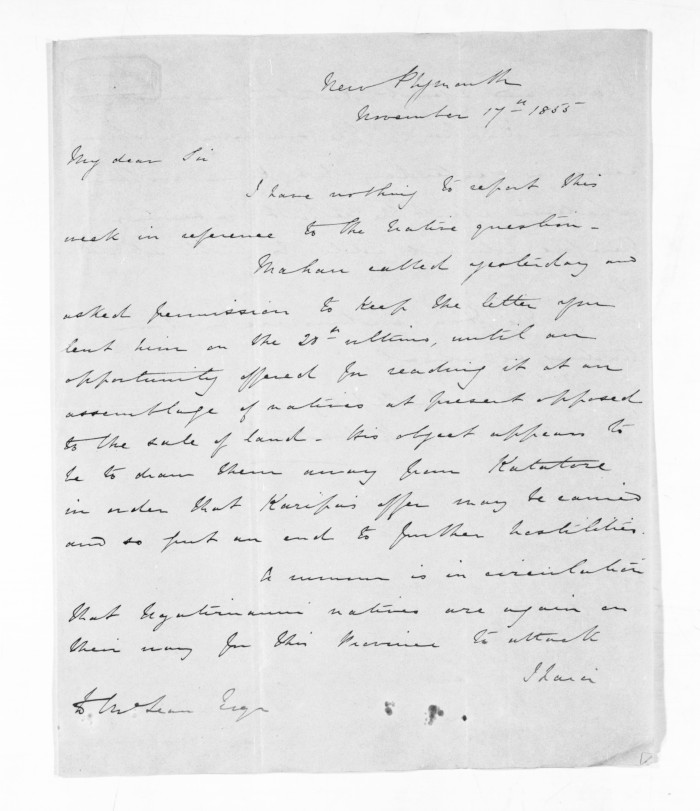 New Plymouth
November 17th 1855
My dear Sir
I have nothing to report this
week in reference to the Native question -
Mahau called yesterday and
asked permission to keep the letter you
lent him on the 20th ultimo, until an
opportunity offered for reading it at an
assemblage of natives at present opposed
to the sale of land - His object appears to
be to draw them away from Katatore
in order that Karipa's offer may be carried
and so put an end to further hostilities.
A rumour is in circulation
that Ngatimaniu natives are again on
their way for this Province to attack
Ihaia
McLean Esqr